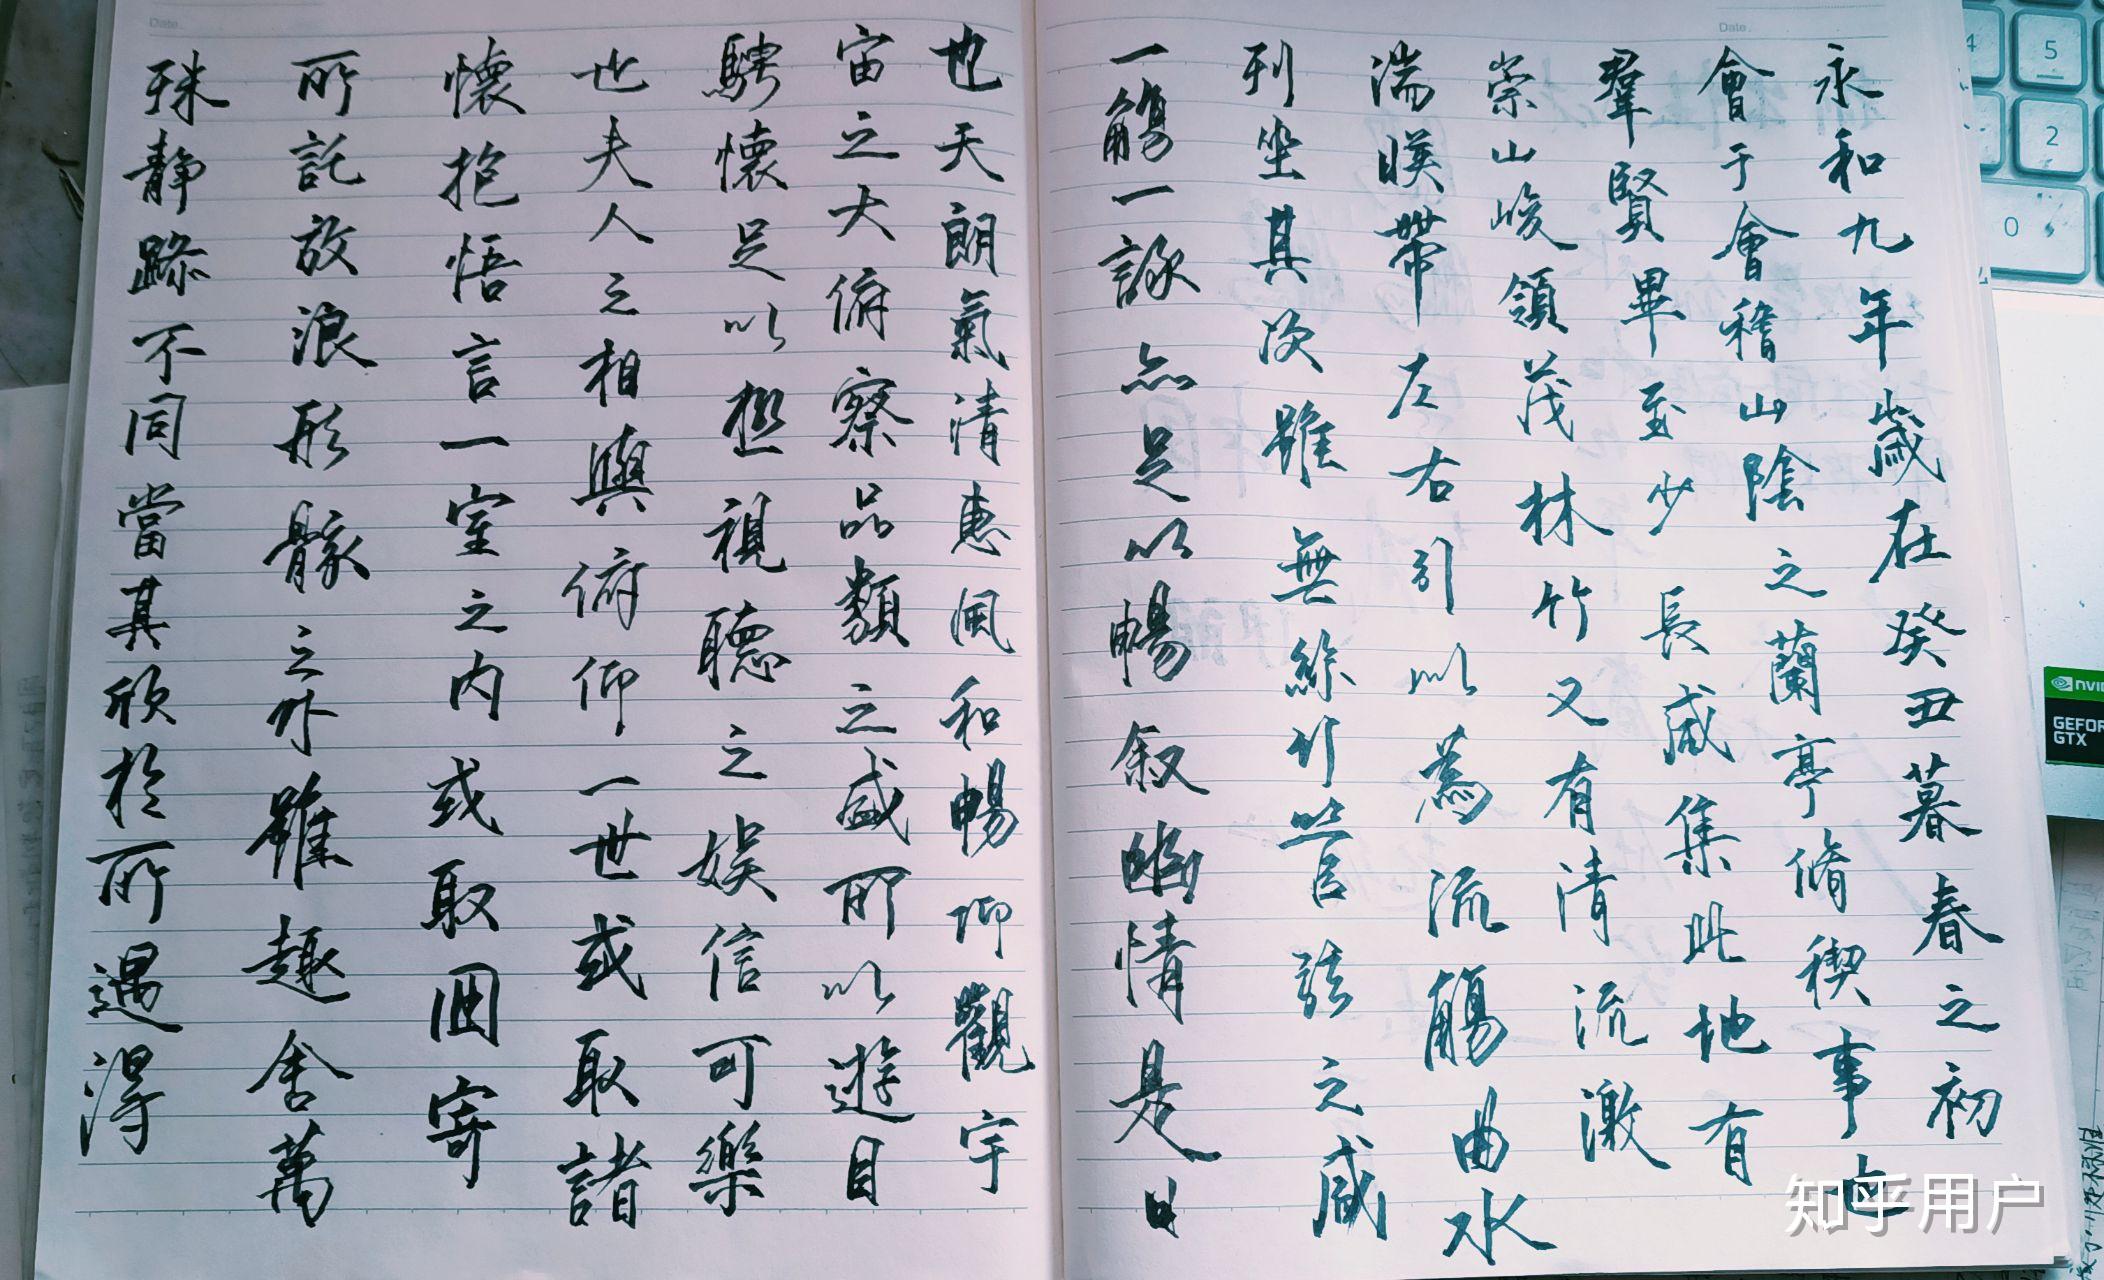 永和九年歲在癸丑暮春之初
會于會稽山陰之蘭亭脩禊事也
羣賢畢至少長咸集此地有
崇山峻領茂林竹又有清流激
湍暎帶左右引以為流觴曲水
列坐其次雖無絲竹管弦之咸
一觴一詠亦足以暢叙幽情是日
也天朗氣清惠風和暢仰觀宇
宙之大俯察品類之盛所以遊目
騁懷足以極視聽之娛信可樂
也夫人之相與俯仰一世或取諸
懷抱悟言一室之內或取因寄
所託放浪形骸之外雖趣舍萬
殊静躁不同當其欣於所遇得
Date.
Date.
4
5
2
0
NVIDIA
GEFOR
GTX
知乎用户